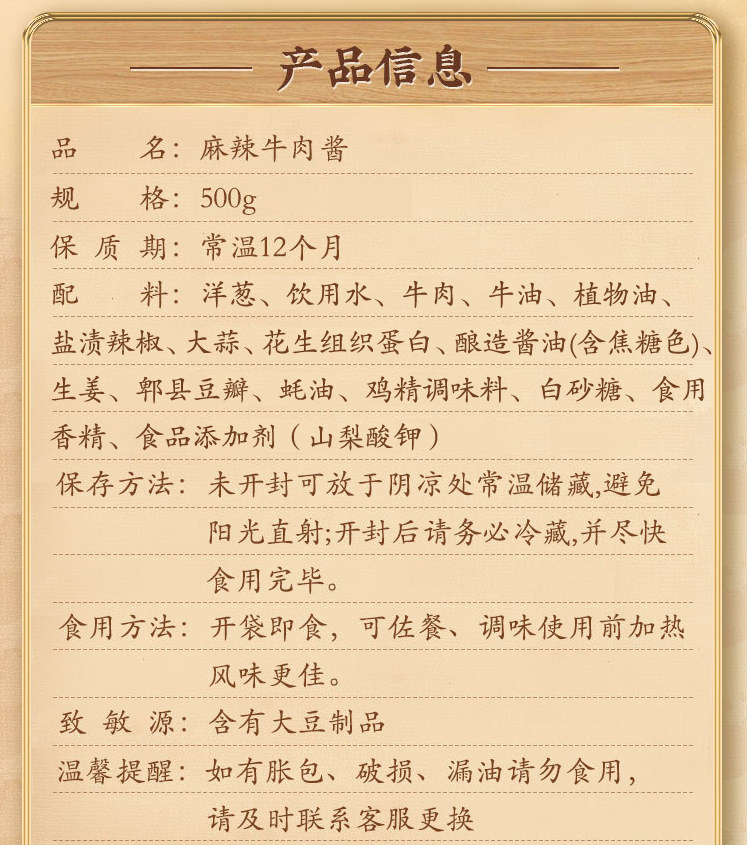 产品信息
品 名：麻辣牛肉酱
规 格：500g
保 质 期：常温12个月
配 料：洋葱、饮用水、牛肉、牛油、植物油、
盐渍辣椒、大蒜、花生组织蛋白、酿造酱油(含焦糖色)、
生姜、郫县豆瓣、蚝油、鸡精调味料、白砂糖、食用
香精、食品添加剂（山梨酸钾）
保存方法：未开封可放于阴凉处常温储藏,避免
阳光直射;开封后请务必冷藏,并尽快
食用完毕。
食用方法：开袋即食，可佐餐、调味使用前加热
风味更佳。
致 敏 源：含有大豆制品
温馨提醒：如有胀包、破损、漏油请勿食用，
请及时联系客服更换